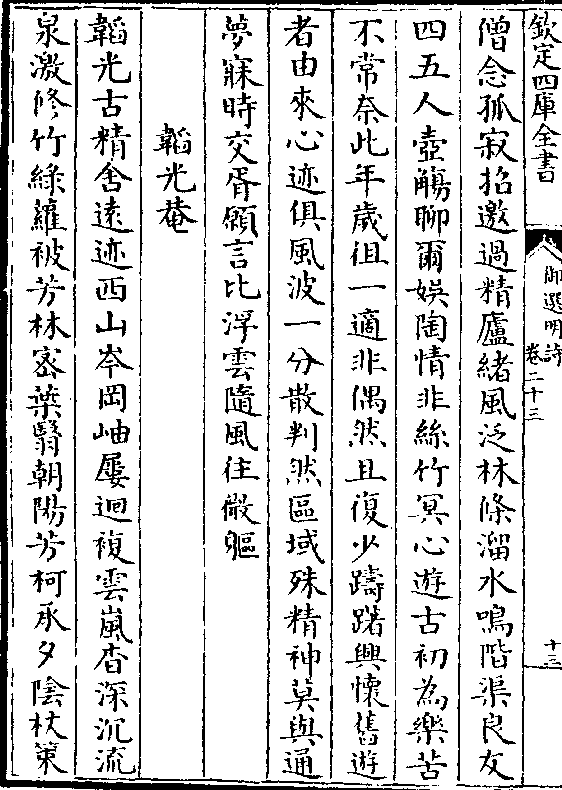 欽定四庫全書
御選明詩
卷二十三
十三
僧念孤寂招邀過精廬緒風泛林條溜水鳴階渠良友
四五人壺觴聊爾娛陶情非絲竹冥心遊古初為樂苦
不常奈此年歲徂一適非偶然且復少躊躇興懷舊遊
者由來心迹俱風波一分散判然區域殊精神莫與通
夢寐時交胥願言比浮雲隨風往微軀
韜光菴
韜光古精舍遠迹西山岑岡岫屢迴複雲嵐杳深沉流
泉激修竹綠蘿被芳林密葉翳朝陽芳柯承夕陰杖策